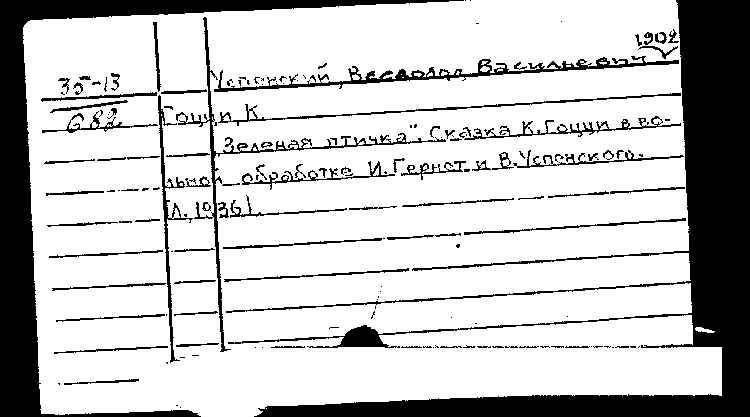 1902
35-13
Успенский, Всеволод Васильевич
682
Гоцци, К.
„Зеленая птичка". Сказка К. Гоцци в во-
льной обработке И. Гернет и В. Успенского.
[Л., 1936].